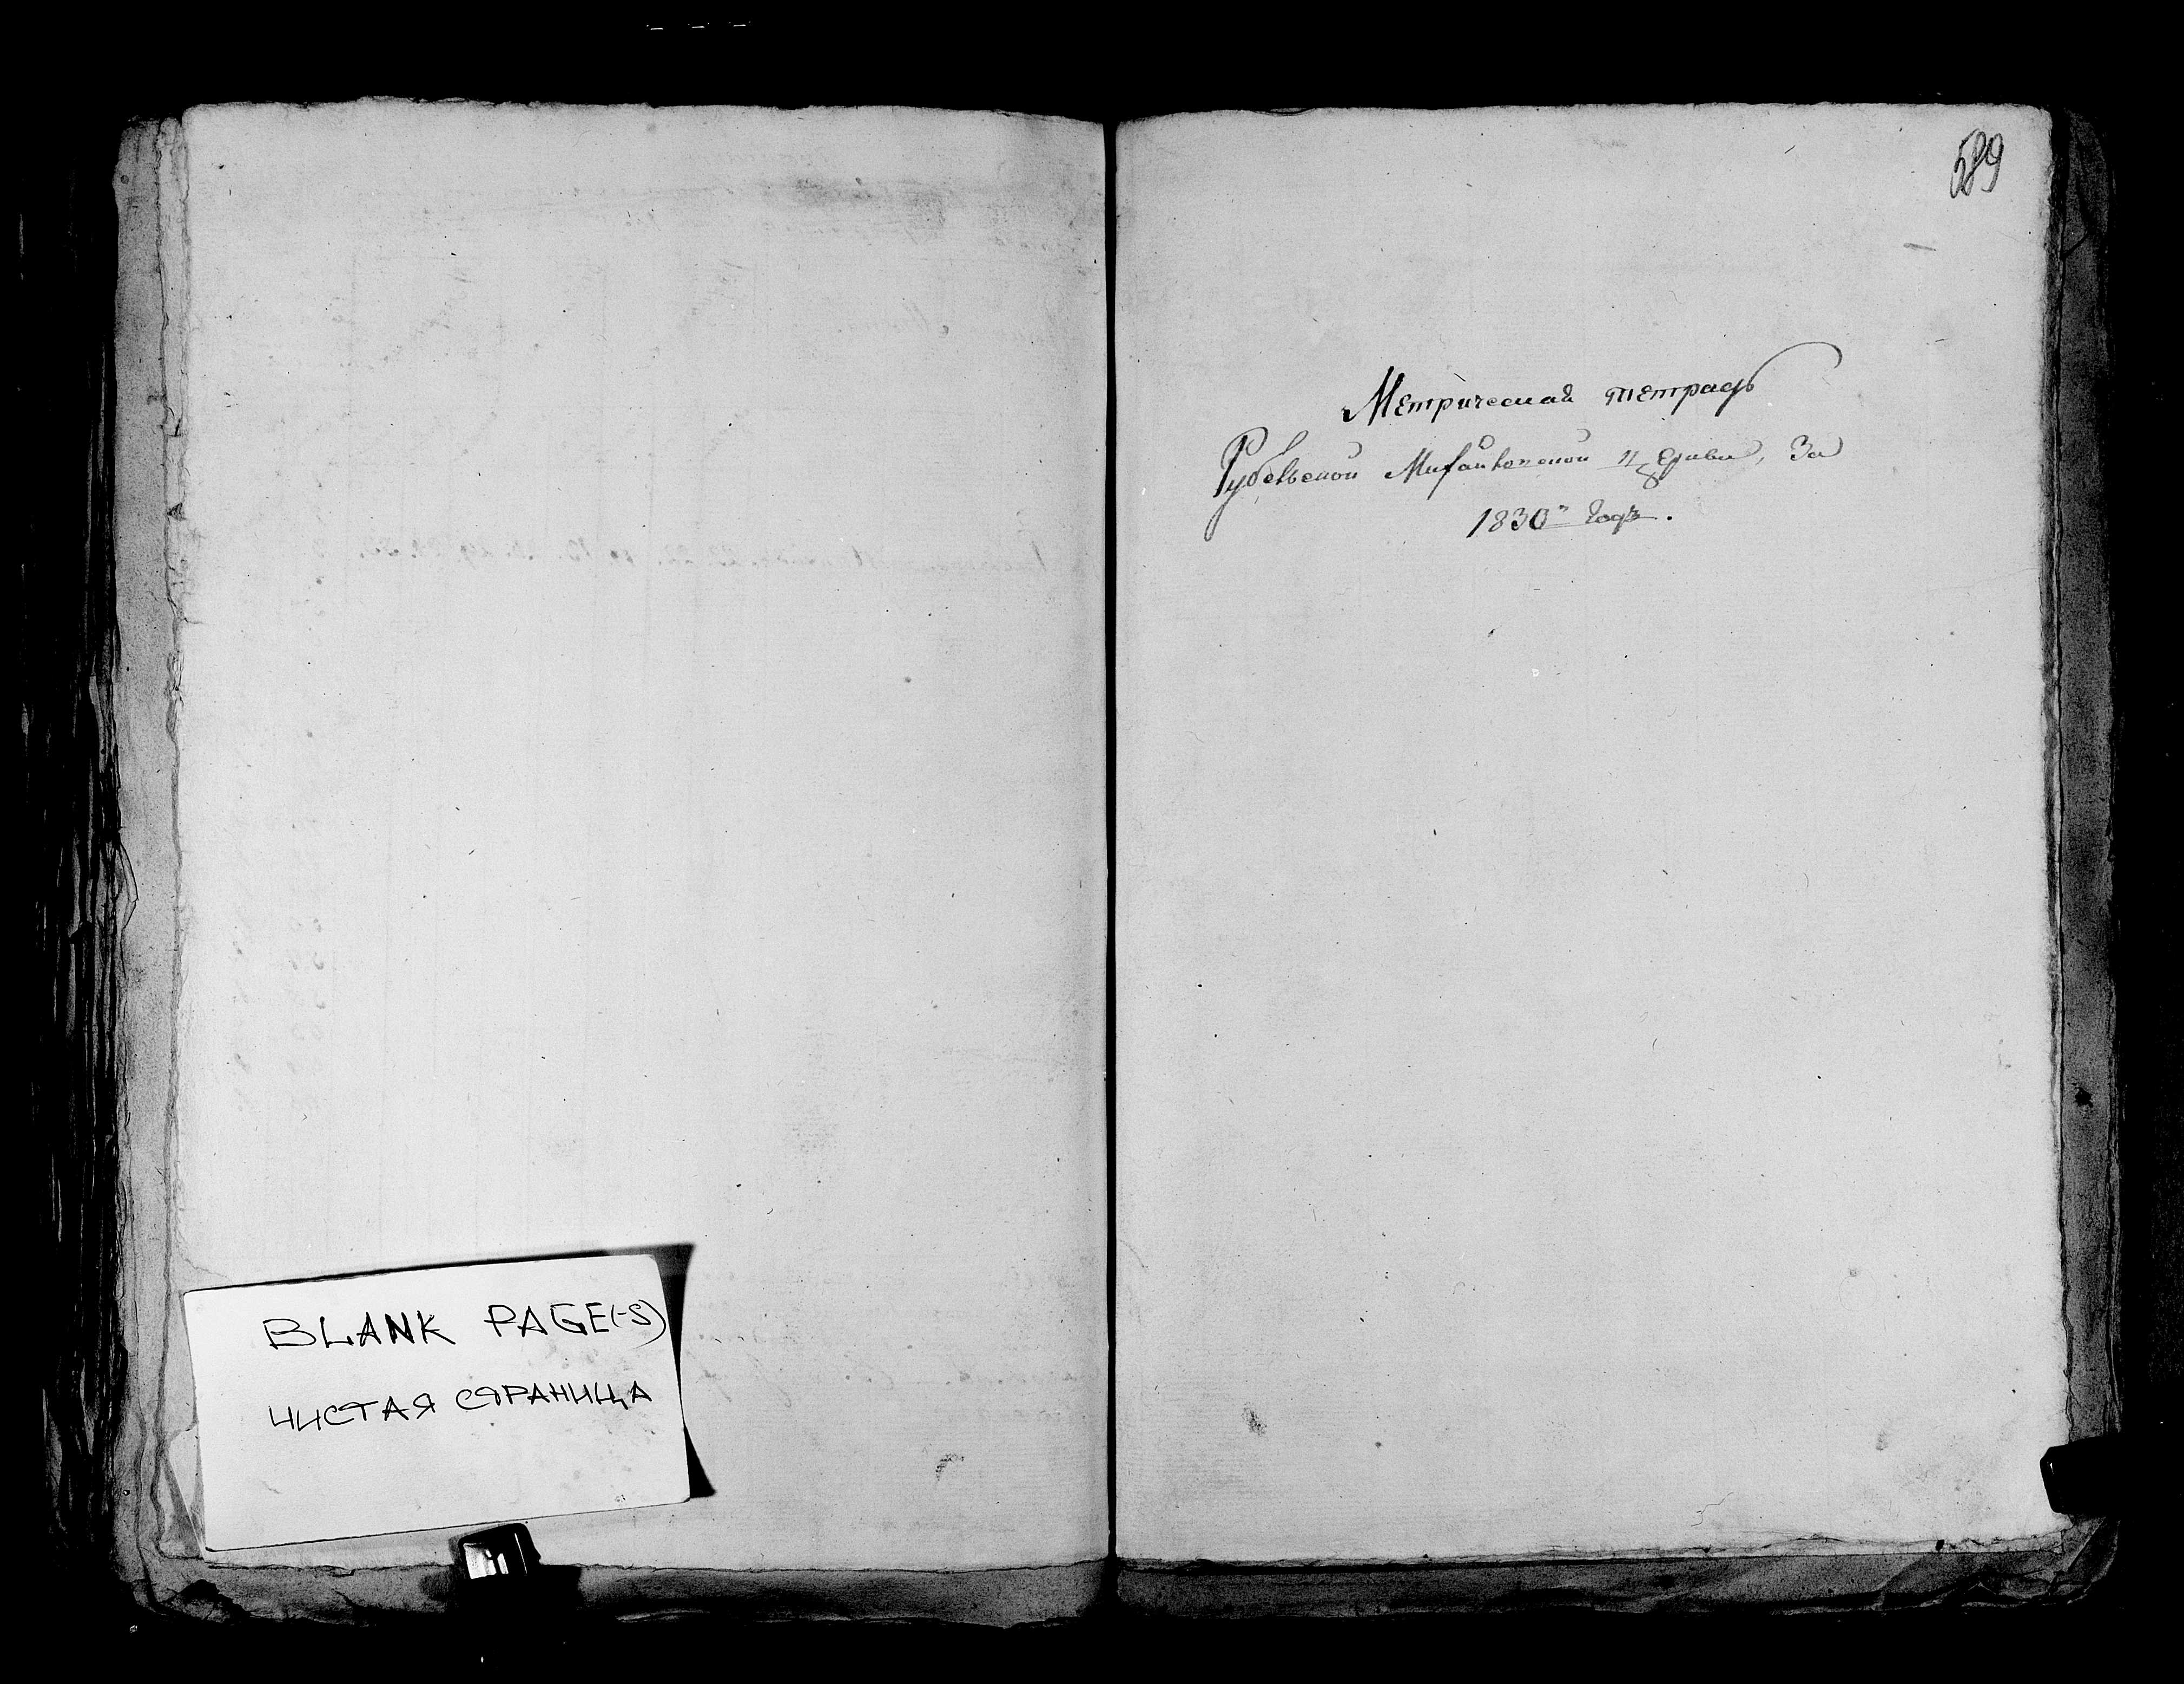 BLANK PAGE(-S)
ЧИСТАЯ СТРАНИЦА
589
Метрическая тетрадь
Рубельской Михайловской церкви, За
1830й Годъ.